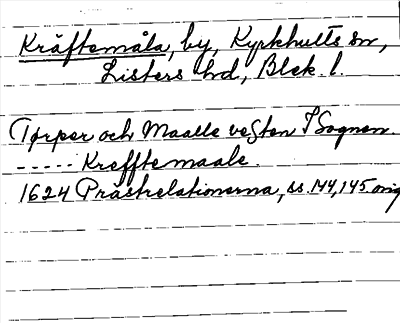 Kräftemåla, by, Kyrkhults sn,
Listers hd, Blek. l.
Tørper och Maalle vesten I Sognen.
----- Krefftemaale.
1624 Prästrelationerna, ss. 144, 145. orig